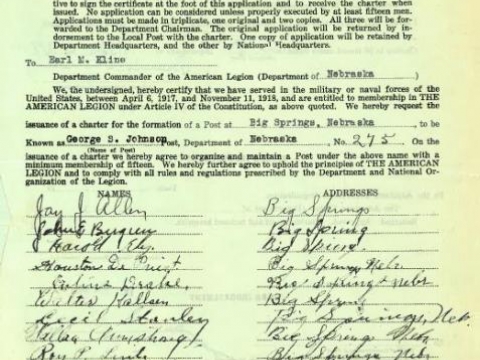 tive to sign the certificate at the foot of this application and to receive the charter when
issued. No application can be considered unless properly executed by at least fifteen men.
Applications must be made in triplicate, one original and two copies. All three will be for-
warded to the Department Chairman. The original application will be returned by in-
dorsement to the Local Post with charter. One copy of application will be retained by
Department Headquarters, and the other by National Headquarters.
To Earl M. Kline
Department Commander of the American Legion (Department of Nebraska)
We, the undersigned, hereby certify that we have served in the military or naval forces of the
United States, between April 6, 1917, and November 11, 1918, and are entitled to membership in THE
AMERICAN LEGION under Article IV of the Constitution, as above quoted. We hereby request the
issuance of a charter for the formation of a Post at Big Springs, Nebraska, to be
Known as George S. Johnson Post, Department of Nebraska No. 275 On the
(Name of Post)
issuance of a charter we hereby agree to organize and maintain a Post under the above name with a
minimum membership of fifteen. We hereby further agree to uphold the principles of THE AMERICAN
LEGION and to comply with all rules and regulations prescribed by the Department and National Or-
ganization of the Legion.
NAMES ADDRESSES
Jay J. Allen Big Springs
John E Bergren Big Spring
Harold Big Spring
Houston De Big Springs Nebr
Drake Big Springs Nebr
Walter Kallsen Big Spring
Cecil Stanley Big Springs, Neb.
Armstrong Big Springs Nebr
Roy Big Springs Nebr